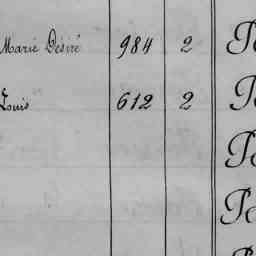 Marie Désiré 984 2
Louis 612 2